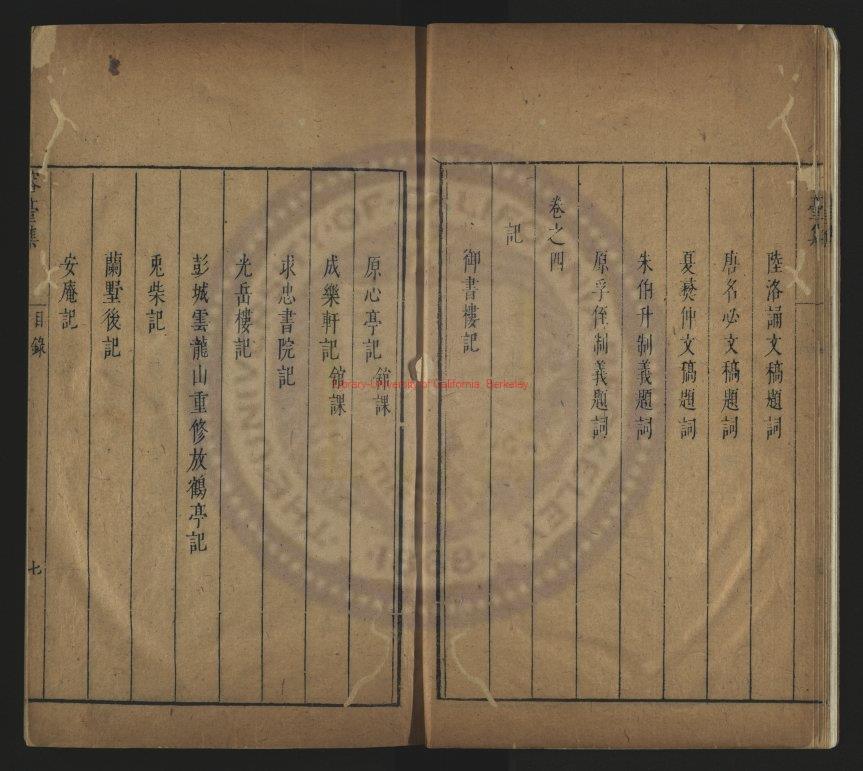 陸洛誦文稿題詞
唐名必文稿題詞
夏燕仲文稿題詞
朱伯升制義題詞
原孚侄制義題詞
卷之四
記
御書樓記
原心亭記 館課
成樂軒記 館課
求忠書院記
光岳樓記
彭城雲龍山重修放鶴亭記
兎柴記
蘭墅後記
安庵記
容臺集
目錄
七
Library-University of California, Berkeley